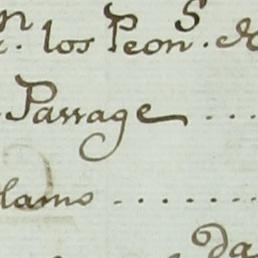 n. los Peon.s de
Passage ....
lamo ........
da